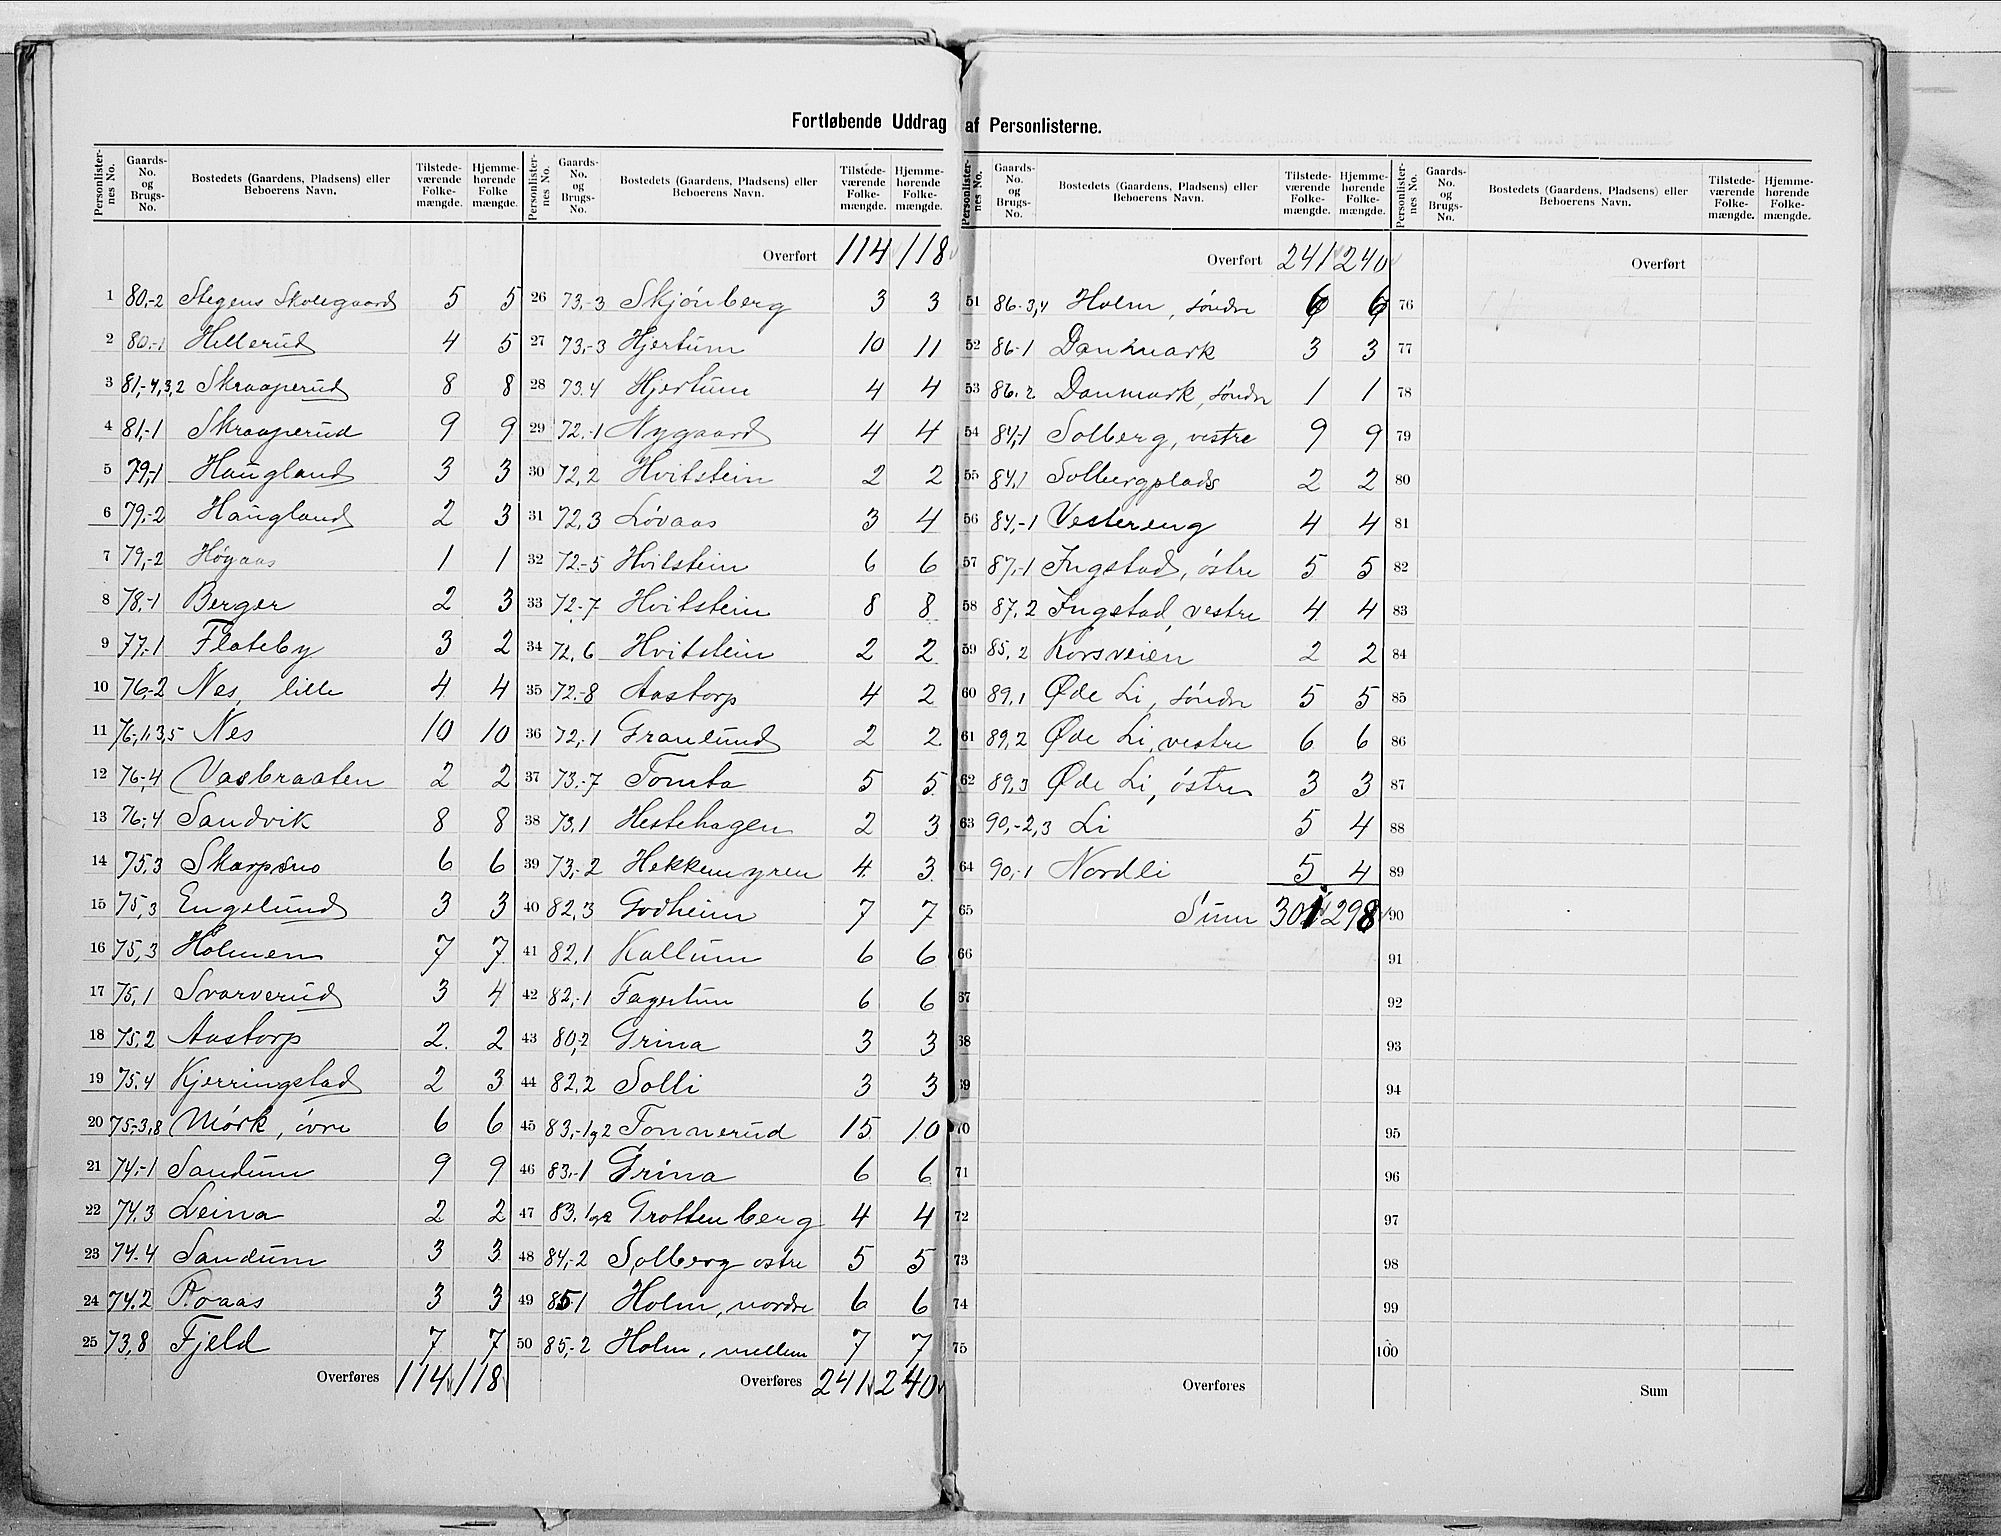 Fortløbende Uddrag af Personlisterne.
Personlisternes No. | Gaards-No. og Brugs-No. | Bostedets (Gaardens, Pladsens) eller Beboerens Navn. | Tilstedeværende Folkemængde. | Hjemmehørende Folkemængde.
1 80,-2 Stegens Skolegaard 5 5
2 80,-1 Hellerud 4 5
3 81,-4,3,2 Skraaperud 8 8
4 81,-1 Skraaperud 9 9
5 79,-1 Haugland 3 3
6 79,-2 Haugland 2 3
7 79,-2 Høgaas 1 1
8 78,-1 Berger 2 3
9 77,-1 Flateby 3 2
10 76,-2 Nes, lille 4 4
11 76,-1,3,5 Nes 10 10
12 76,-4 Vasbraaten 2 2
13 76,-4 Sandvik 8 8
14 75,3 Skarpsno 6 6
15 75,3 Engelund 3 3
16 75,3 Holmen 7 7
17 75,1 Svarverud 3 4
18 75,2 Aastorp 2 2
19 75,4 Kjerringstad 2 3
20 75,-3,8 Mörk, övre 6 6
21 74,-1 Sandum 9 9
22 74,3 Leina 2 2
23 74.4 Sandum 3 3
24 74.2 Roaas 3 3
25 73,8 Fjeld 7 7
Overføres 114 118
Overført 114 118
26 73,-3 Skjönberg 3 3
27 73,-3 Hjertum 10 11
28 73.4 Hjertum 4 4
29 72,-1 Nygaard 4 4
30 72,2 Hvitstein 2 2
31 72,3 Lövaas 3 4
32 72,-5 Hvitstein 6 6
33 72,-7 Hvitstein 8 8
34 72,6 Hvitstein 2 2
35 72,-8 Aastorp 4 2
36 72,-1 Granlund 2 2
37 73,-7 Tomta 5 5
38 73,1 Hestehagen 2 3
39 73,-2 Hekkemyren 4 3
40 82,3 Godheim 7 7
41 82,1 Kallum 6 6
42 82,-1 Fagertun 6 6
43 80,-2 Grina 3 3
44 82,2 Solli 3 3
45 83,-1 g 2 Tonnerud 15 10
46 83,-1 Grina 6 6
47 83,1 g 2 Grottenberg 4 4
48 84,-2 Solberg ostre 5 5
49 85-1 Holm, nordre 6 6
50 85,-2 Holm, mellem 7 7
Overføres 241 240
Overført 241 240
51 86-3,4 Holm, söndre 6 6
52 86-1 Danmark 3 3
53 86,2 Danmark, söndre 1 1
54 84,-1 Solberg, vestre 9 9
55 84,1 Solbergplads 2 2
56 84,-1 Vestereng 4 4
57 87,-1 Ingstad, östre 5 5
58 87,2 Ingstad, vestre 4 4
59 85,2 Korsveien 2 2
60 89,1 Øde Li, söndre 5 5
61 89,2 Øde Li, vestre 6 6
62 89,3 Øde Li, östre 3 3
63 90,-2,3 Li 5 4
64 90,-1 Nordli 5 4
65 Sum 301 298
66
67
68
69
70
71
72
73
74
75
Overføres
Overført
76
77
78
79
80
81
82
83
84
85
86
87
88
89
90
91
92
93
94
95
96
97
98
99
100
Sum